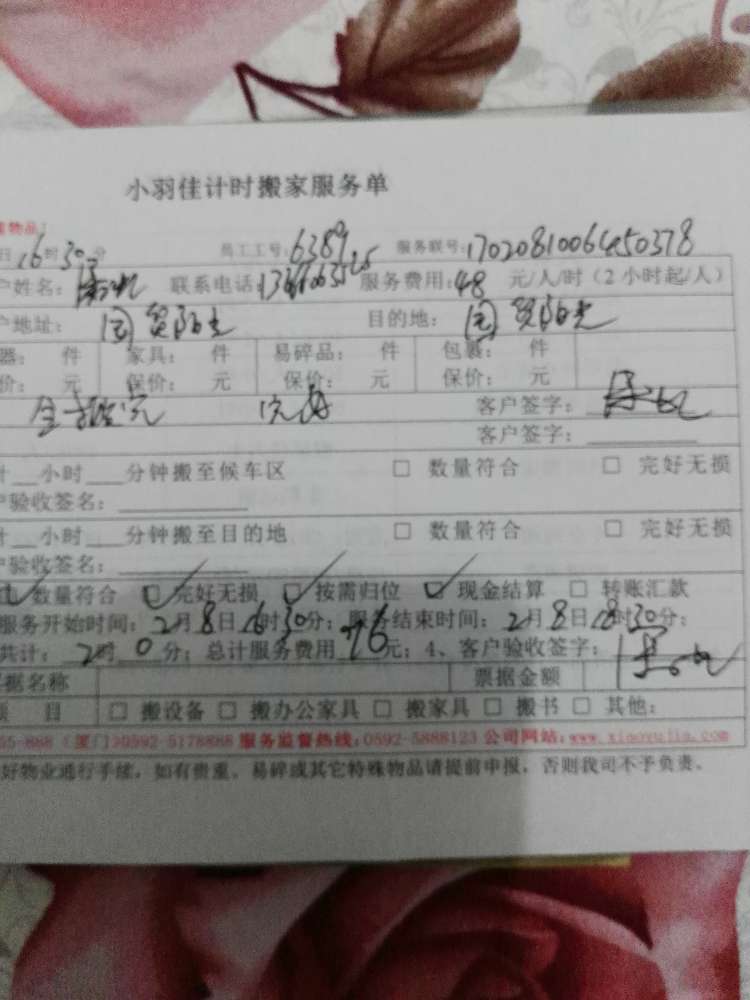 小羽佳计时搬家服务单
物品：
日16时30分 员工工号：6389 服务联号：1702081006450378
户姓名： 联系电话： 服务费用：48 元/人/时（2小时起/人）
户地址：国贸阳光 目的地：国贸阳光
器： 件 家具： 件 易碎品： 件 包裹： 件
价： 元 保价： 元 保价： 元 保价： 元
客户签字：
客户签字：
计__小时___分钟搬至候车区 □ 数量符合 □ 完好无损
户验收签名：
计__小时___分钟搬至目的地 □ 数量符合 □ 完好无损
户验收签名：
☑ 数量符合 ☑ 完好无损 ☑ 按需归位 ☑ 现金结算 □ 转账汇款
服务开始时间：2月8日16时30分；服务结束时间：2月8日18时30分；
共计：2时0分；总计服务费用96元；4、客户验收签字：
据名称 票据金额
项 目 □ 搬设备 □ 搬办公家具 □ 搬家具 □ 搬书 □ 其他：
55-888（厦门）0592-5178888 服务监督热线：0592-5888123 公司网站：www.xiaoyujia.com
好物业通行手续，如有贵重、易碎或其它特殊物品请提前申报，否则我司不予负责。